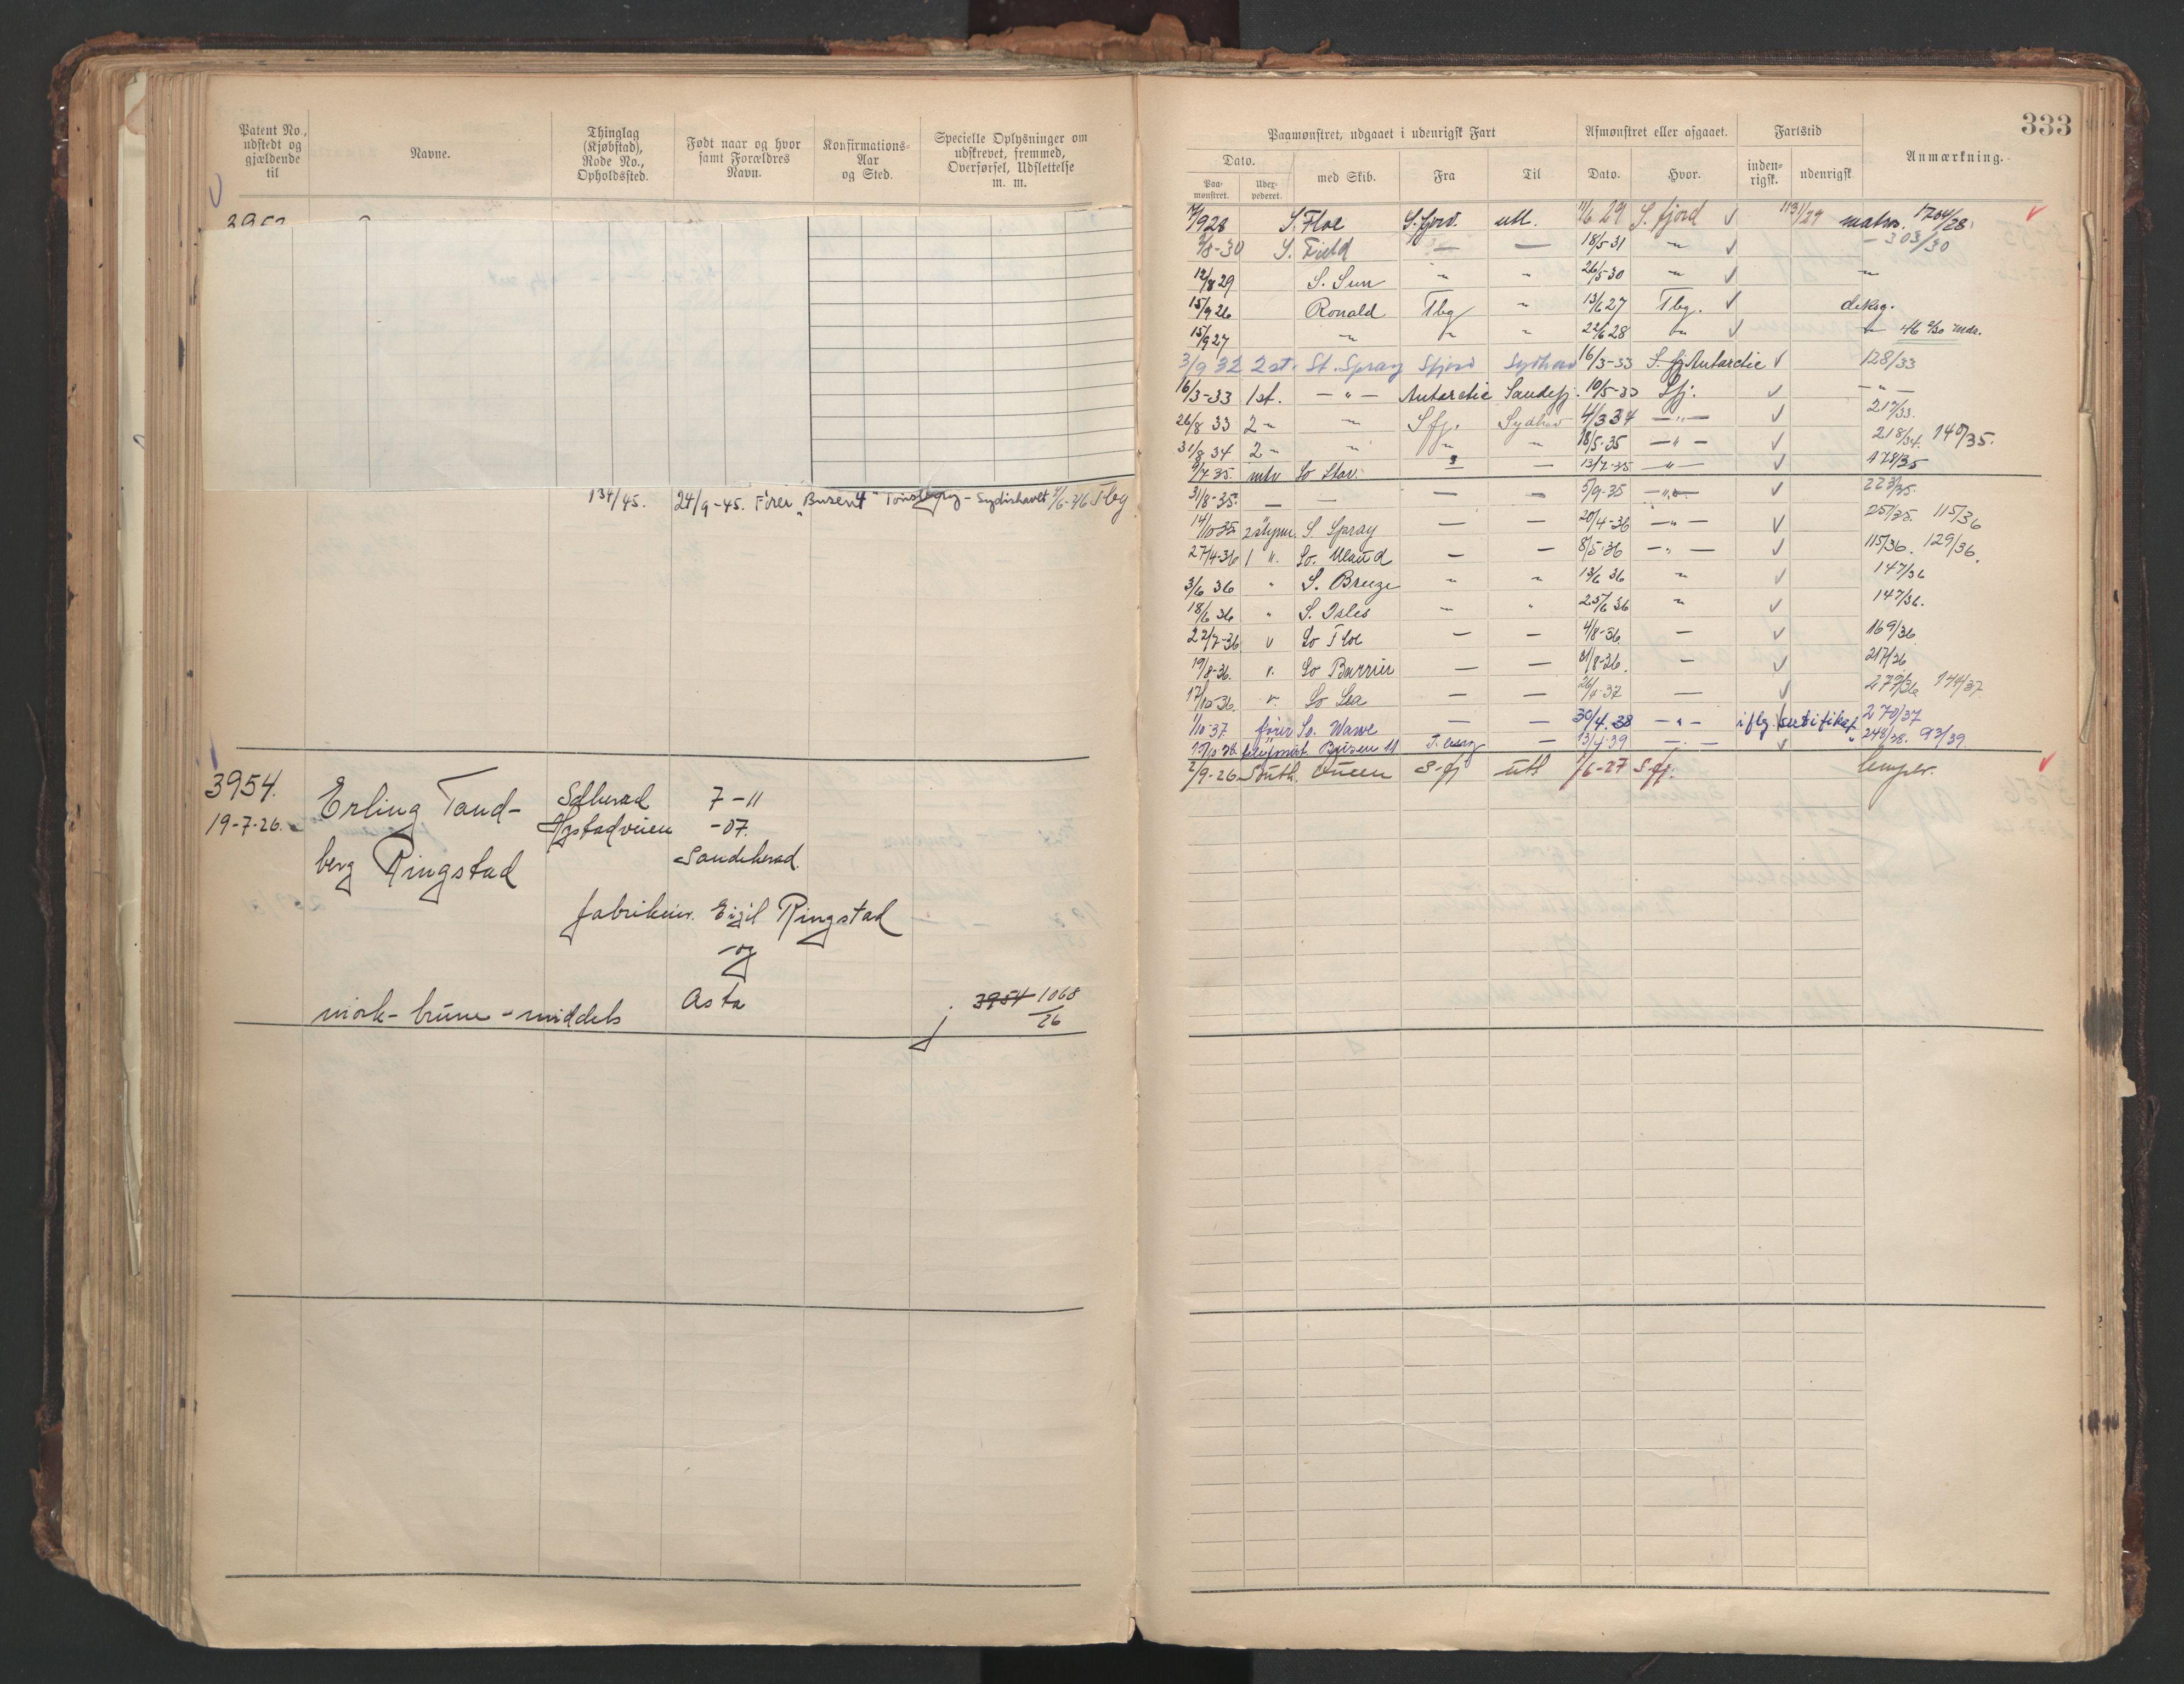 333
Patent No., udstedt og gjældende til
Navne.
Thinglag (Kjøbstad), Rode No., Opholdssted.
Født naar og hvor samt Forældres Navn.
Konfirmations-Aar og Sted.
Specielle Oplysninger om udskrevet, fremmed, Overførsel, Udslettelse m. m.
134/45. 24/9-45. Fører "Busen 4" Tønsberg - Sydishavet /6-46 Tbg
3954. Erling Tand-
19-7-26.
berg Ringstad
7-11
-07.
Sandeherad.
Eigil Ringstad
og
Asta
mørk - brune - middels
3954 1068
26
Paamønstret, udgaaet i udenrigsk Fart
Afmønstret eller afgaaet.
Fartstid
Anmærkning.
Dato.
Paa-mønstret.
Udex-pederet.
med Skib.
Fra
Til
Dato.
Hvor.
inden-rigsk.
udenrigsk
/9 28 S. Floe S.fjord. utl. 11/6 29 S.fjord ✓ 113/29 matros. 1204/28.
/8-30 S. Field — — 18/5-31 " ✓ - 303/30
12/8 29 S. Sun " " 26/5-30 " ✓ "
15/9 26 Ronald Tbg " 13/6 27 Tbg. ✓ deksg.
15/9 27 " " " 22/6 28 " ✓ " 46 /30 mdr.
3/9 32 2 st. St. Spray Sfjord Sydhav 16/3-33 S. fj Antarctic ✓ 128/33
16/3-33 1st. — " — Antarctic Sandefj. 10/5-33 Sfj. ✓ — " —
26/8 33 2 " " Sfj. Sydhav 4/3 34 — " — ✓ 217/33.
31/8 34 2 " " " " 18/5-35 — " — ✓ 218/34. 140/35.
9/7 35. mtr So Star. — — 13/7-35 — " — ✓ 178/35
31/8-35. — — — — 5/9-35 — " — ✓ 223/35.
14/10-35 2 styrm. S. Spray — — 20/4-36 — " — ✓ 115/36
27/4-36 1 ". So. Maud — — 8/5-36 — " — ✓ 115/36. 129/36.
3/6 36 " S. Breeze " " 13/6 36 " ✓ 147/36
18/6 36 " S. Isles " " 25/6 36 " ✓ 147/36.
22/7-36 " So Floe — — 4/8-36 — ✓ 169/36
19/8-36. " So Barrier — — 31/8-36. — ✓ 217/36
17/10-36. " So Sea — — 26/4-37 — ✓ 279/36 144/37
1/10-37 fører So. Wawe — — 30/4.38 — " — iflg. sertifikat 270/37
Busen 11 T.berg — 13/4-39 — " — ✓ " 248/38. 93/39
2/9-26 South. Queen S-fj utl. /6-27 S-fj.